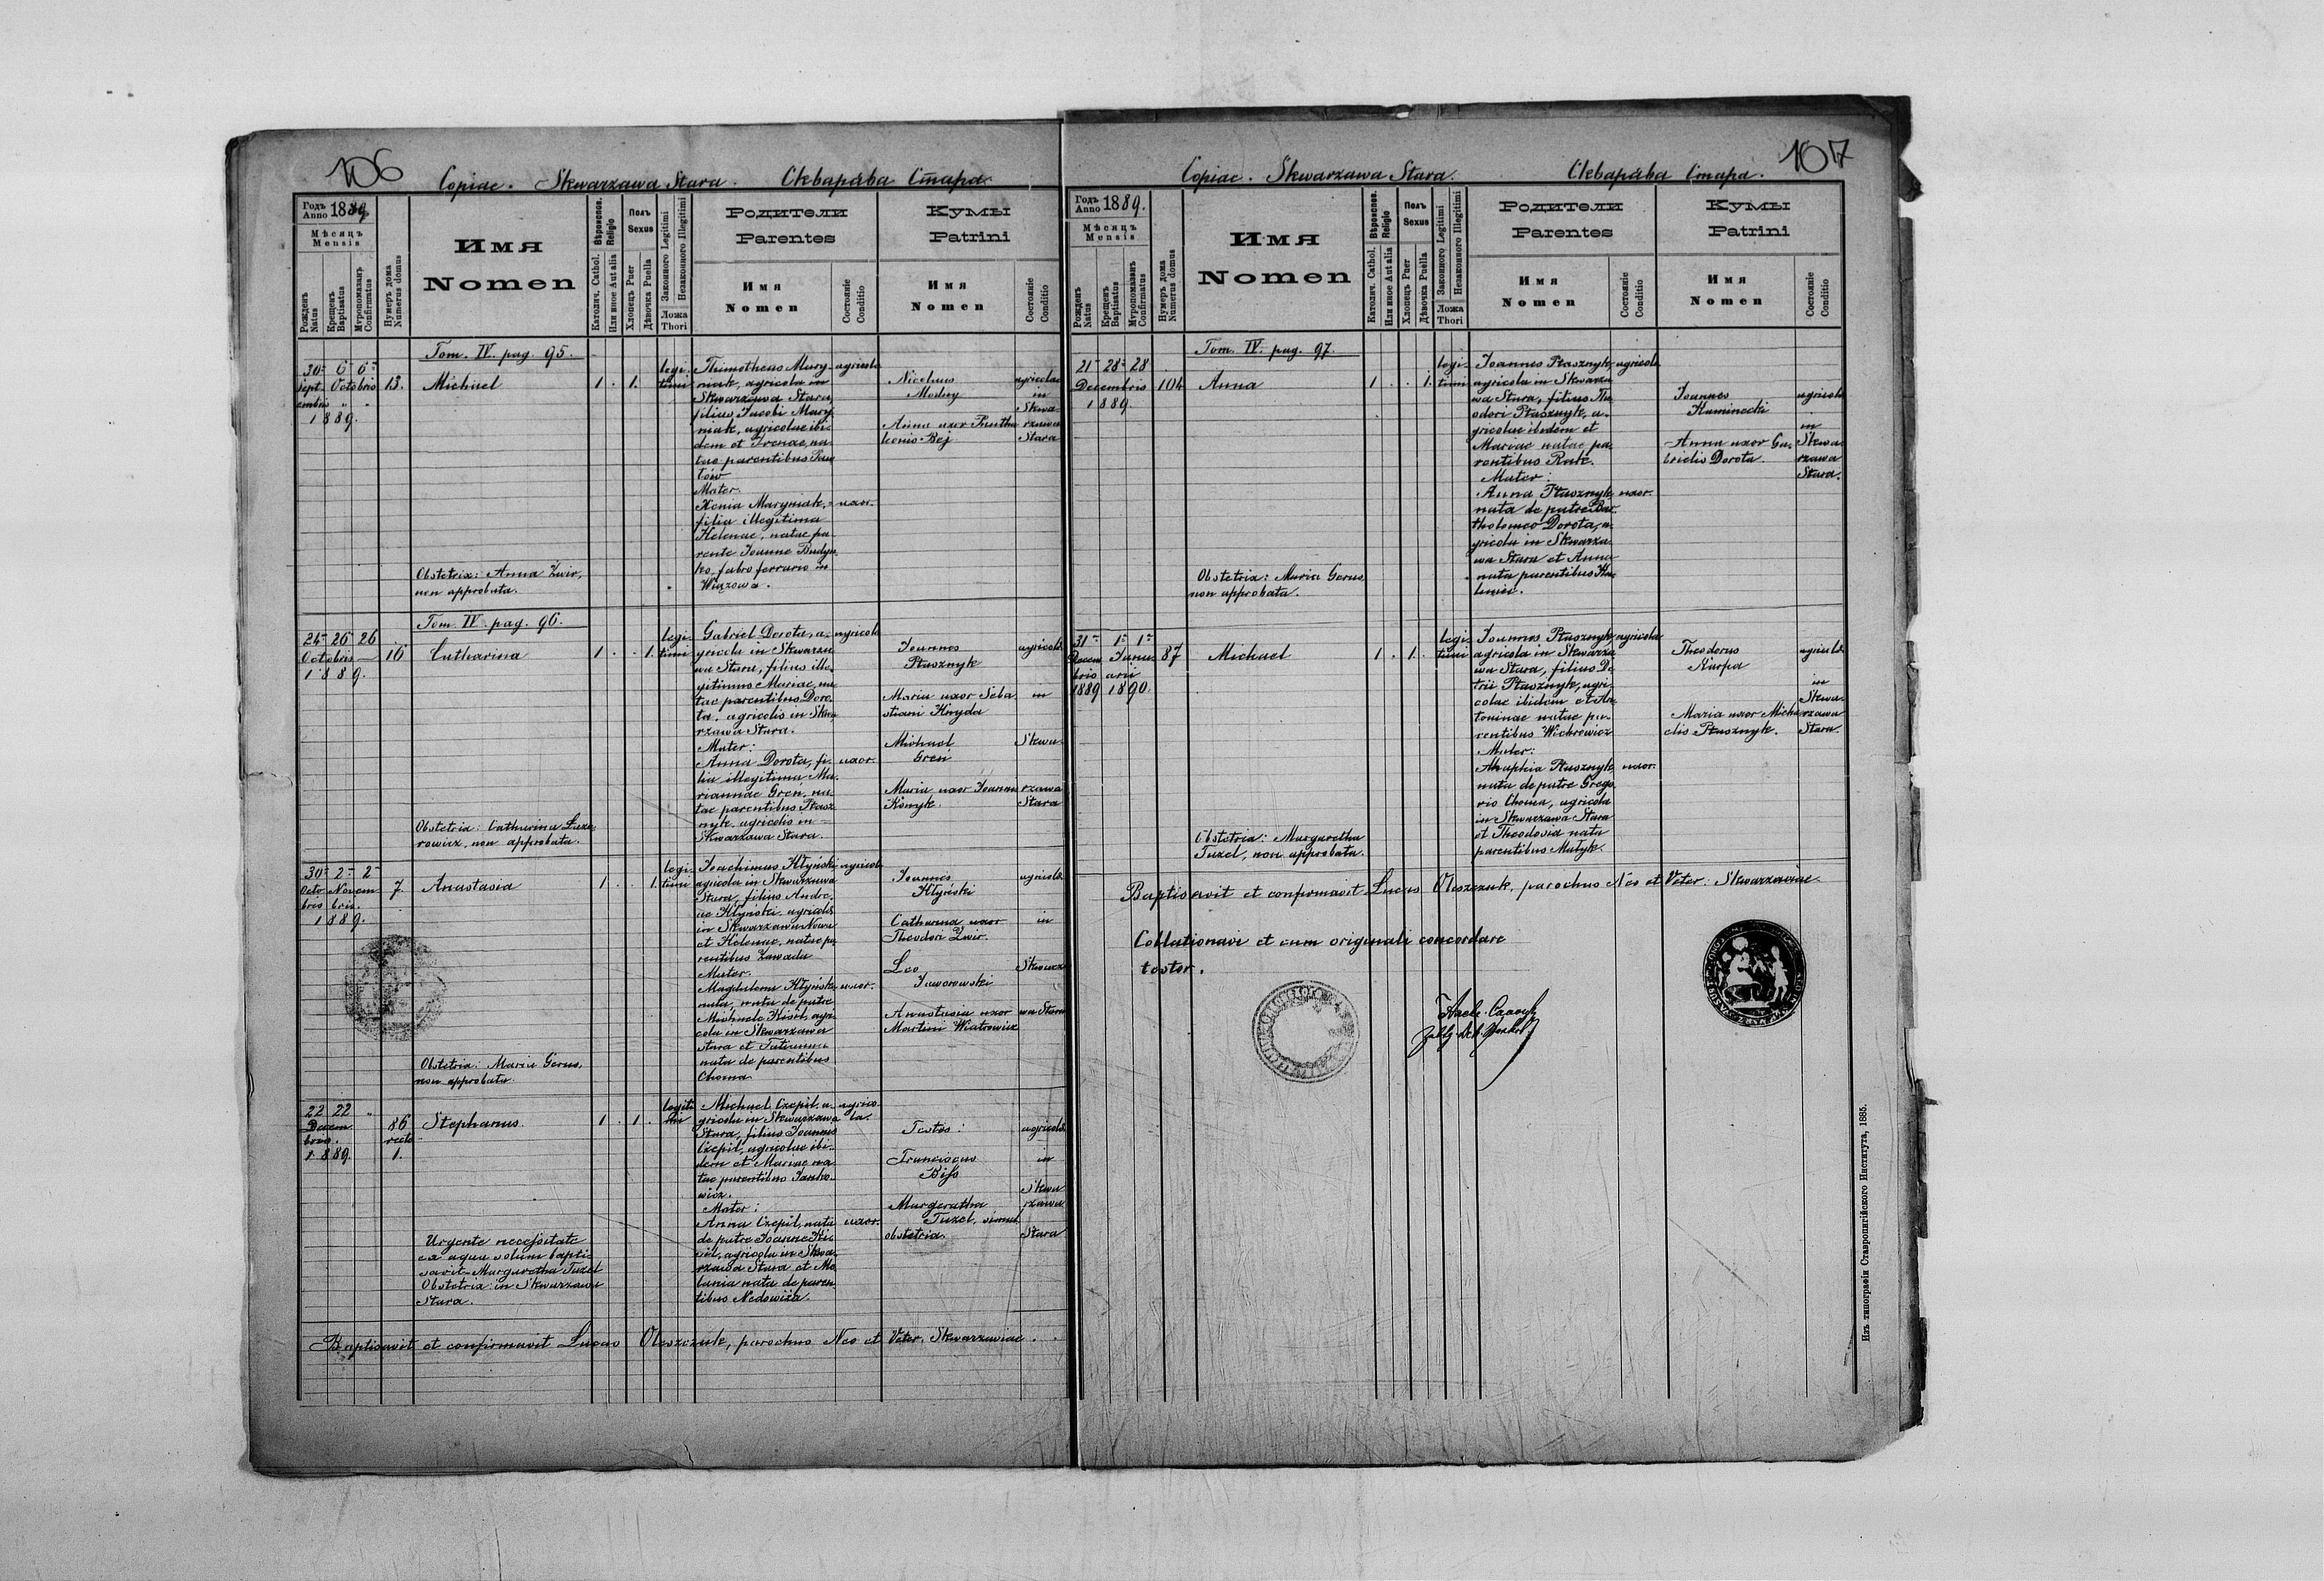 106
Copiae. Skwarzawa Stara. Скварѣва Стара.
Годъ Anno 1889
Мѣсяцъ
Mensis
Рожденъ Natus
Крещенъ Baptisatus
Мѵропомазанъ Confirmatus
Нумеръ дома Numerus domus
Имя
Nomen
Вѣроиспов. Religio
Католич. Cathol.
Или иное Aut alia
Полъ
Sexus
Хлопецъ Puer
Дѣвочка Puella
Законного Legitimi
Незаконного Illegitimi
Ложа
Thori
Родители
Parentes
Имя
Nomen
Состояніе
Conditio
Кумы
Patrini
Имя
Nomen
Состояніе
Conditio
Tom. IV. pag. 95.
30 6 6
Sept Octobris
embris " "
1889.
13.
Michael
1 . 1.
legi-
timi
Thimotheus Mary-
niak, agricola in
Skwarzawa Stara,
filius Jacobi Mary-
niak, agricolae ibi-
dem et Irenae, na-
tae parentibus
Mater.
Xenia Maryniak,
filia illegitima
Helenae, natae pa-
rente Joanne Budyn-
ko, fabro ferrario in
Wiązowa.
agricola
uxor.
Nicolaus
Modny
Anna uxor Pantha
leonis Bej
agricolae
in
Skwa-
rzawa
Stara
Obstetrix: Anna Zwir,
non approbata.
Tom. IV. pag. 96.
24 26 26
Octobris
1889.
16
Catharina
1 . . 1.
legi-
timi
Gabriel Dorota, a-
gricola in Skwarza
wa Stara, filius ille-
gitimus Mariae, na-
tae parentibus Doro-
ta, agricolis in Skwa-
rzawa Stara.
Mater:
Anna Dorota, fi-
lia illegitima Ma-
riannae Gren, na-
tae parentibus Ptasz
nyk, agricolis in
Skwarzawa Stara.
agricola
uxor.
Joannes
Ptasznyk
Maria uxor Seba
stiani Hnyda
Michael
Gren
Maria uxor Joannis
Konyk.
agricolae
in
Skwa-
rzawa
Stara
Obstetrix: Catharina Laze-
rowicz, non approbata.
30 2 2
Octo- Novem
bris bris.
1889.
7.
Anastasia
1 . . 1.
legi-
timi
Joachimus Kłyński
agricola in Skwarzawa
Stara, filius Andre-
ae Kłyński, agricolae
in Skwarzawa Nowa
et Helenae, natae pa
rentibus Zawada
Mater.
Magdalena Kłyńska
nata de patre
Michaele Kisil, agri-
cola in Skwarzawa
stara et Tatianna
nata de parentibus
Choma
agricola
uxor.
Joannes
Kłyński
Catharina uxor
Theodori Zwir.
Leo
Jaworowski
Anastasia uxor
Martini Wiatrowicz
agricolae
in
Skwarza
wa Stara
Obstetrix: Maria Gerus,
non approbata.
22 22 "
Decem
bris.
1889.
86
recte
1.
Stephanus.
1 . 1 .
legiti
mi
Michael Czepil, a-
gricola in Skwarzawa
Stara, filius Joannis
Czepil, agricolae ibi-
dem et Mariae na-
tae parentibus Janko-
wicz.
Mater:
Anna Czepil, nata
de patre Joanne Ki-
sil, agricola in Skwa-
rzawa Stara et Me
lania nata de paren
tibus Nedowiza.
agrico-
la.
uxor.
Testes:
Franciscus
Biss
Margaretha
Tuzel, simul
obstetrix.
agricolae
in
Skwa
rzawa
Stara
Urgente necessitate
ex aqua solum bapti-
savit Margaretha Tuzel
Obstetrix in Skwarzawa
Stara.
Baptisavit et confirmavit Lucas Oleszczuk, parochus Neo et Veter. Skwarzaviae.
107
Copiae. Skwarzawa Stara. Скварѣва Стара.
Годъ Anno 1889.
Мѣсяцъ
Mensis
Рожденъ Natus
Крещенъ Baptisatus
Мѵропомазанъ Confirmatus
Нумеръ дома Numerus domus
Имя
Nomen
Вѣроиспов. Religio
Католич. Cathol.
Или иное Aut alia
Полъ
Sexus
Хлопецъ Puer
Дѣвочка Puella
Законного Legitimi
Незаконного Illegitimi
Ложа
Thori
Родители
Parentes
Имя
Nomen
Состояніе
Conditio
Кумы
Patrini
Имя
Nomen
Состояніе
Conditio
Tom. IV. pag. 97.
21 28 28
Decembris
1889.
104
Anna
1 . . 1.
legi-
timi
Joannes Ptasznyk,
agricola in Skwarza
wa Stara, filius The
odori Ptasznyk, a-
gricolae ibidem et
Mariae natae pa-
rentibus Rak.
Mater:
Anna Ptasznyk
nata de patre Bar-
tholomeo Dorota, a-
gricola in Skwarza-
wa Stara et Anna
nata parentibus
agricola
uxor.
Joannes
Kaminecki
Anna uxor Ga-
brielis Dorota.
agricolae
in
Skwa-
rzawa
Stara.
Obstetrix: Maria Gerus,
non approbata.
31 1 1
Decem Janu-
bris arii
1889 1890.
87
Michael
1 . 1 .
legi-
timi
Joannes Ptasznyk,
agricola in Skwarza
wa Stara, filius De
trii Ptasznyk, agri-
colae ibidem et An-
toninae natae pa-
rentibus Wichrowicz
Mater:
Ahaphia Ptasznyk
nata de patre Grego
rio Choma, agricola
in Skwarzawa Stara
et Theodosia nata
parentibus Matyk.
agricola
uxor.
Theodorus
Karpa
Maria uxor Micha
elis Ptasznyk.
agricolae
in
Skwa-
rzawa
Stara.
Obstetrix: Margaretha
Tuzel, non approbata.
Baptisavit et confirmavit Lucas Oleszczuk, parochus Neo et Veter. Skwarzaviae
Collationavi et cum originali concordare
testor.
Изъ типографіи Ставропигійского Института, 1885.